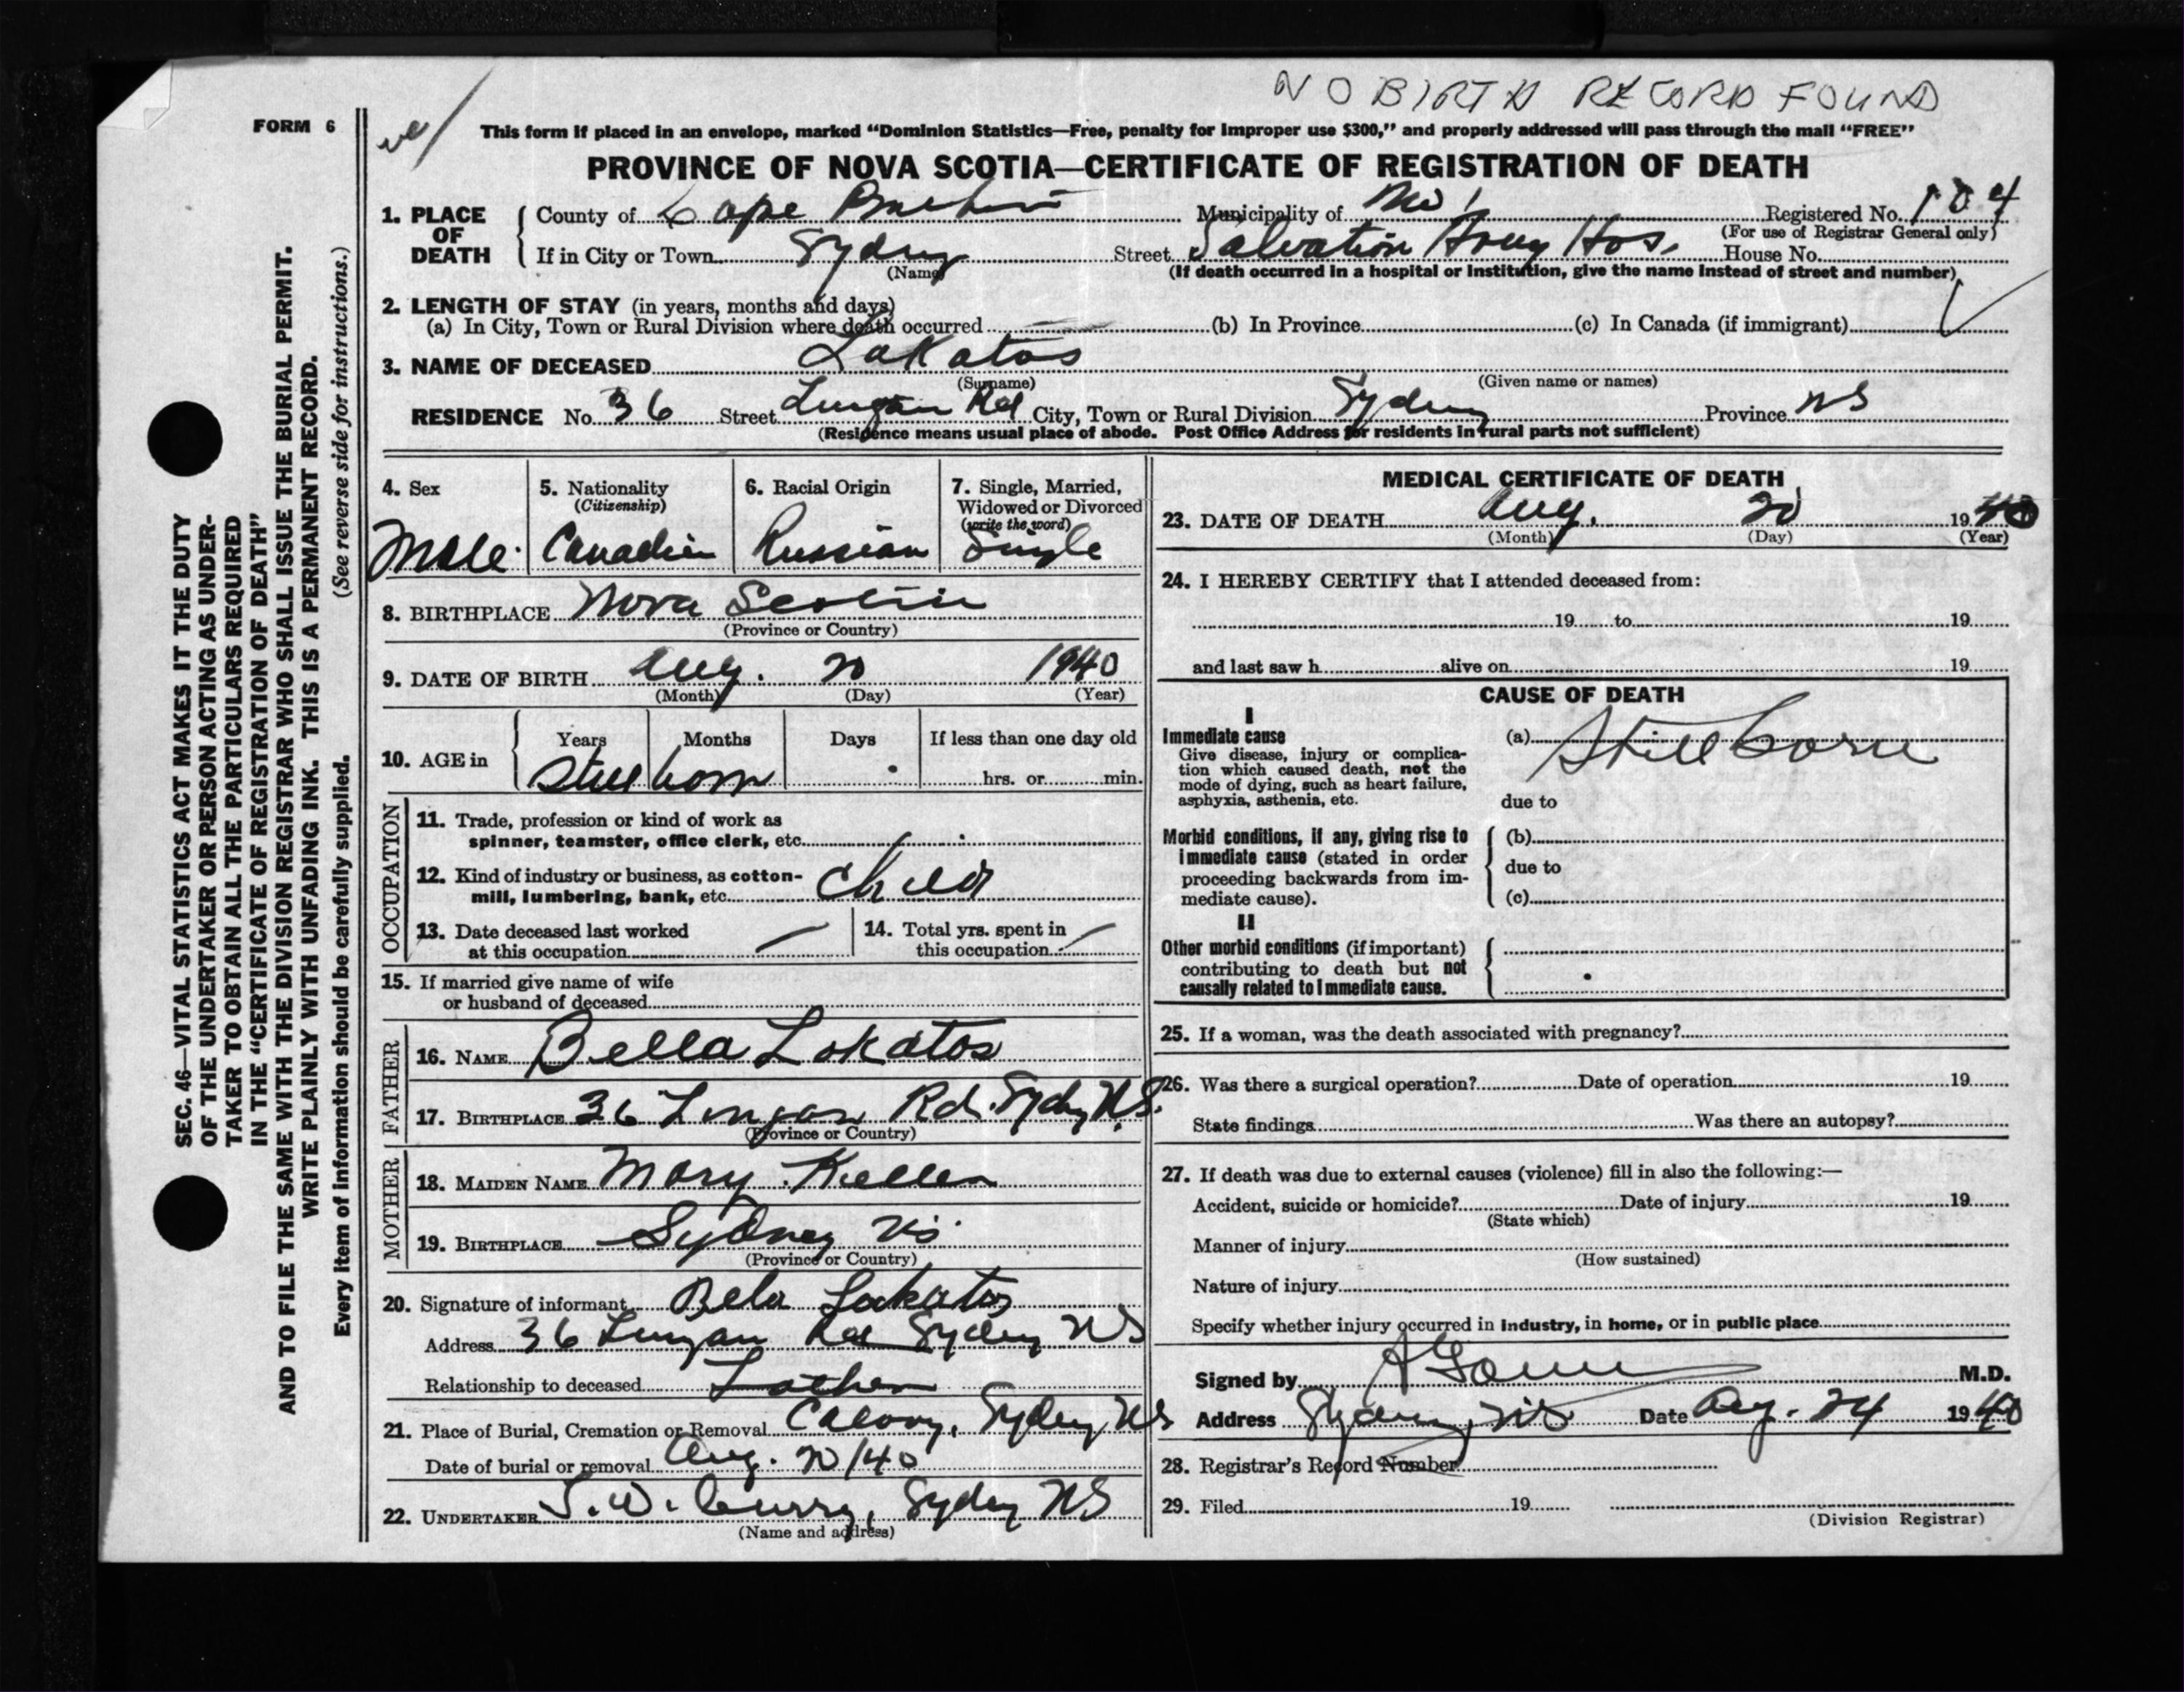 NO BIRTH RECORD FOUND
FORM 6
This form if placed in an envelope, marked “Dominion Statistics—Free, penalty for improper use $300,” and properly addressed will pass through the mail “FREE”
PROVINCE OF NOVA SCOTIA—CERTIFICATE OF REGISTRATION OF DEATH
1. PLACE OF DEATH
County of Cape Breton Municipality of Registered No. 184
(For use of Registrar General only)
If in City or Town Sydney Street Salvation Army Hos. House No.
(Name)
(If death occurred in a hospital or institution, give the name instead of street and number)
2. LENGTH OF STAY (in years, months and days)
(a) In City, Town or Rural Division where death occurred (b) In Province (c) In Canada (if immigrant)
3. NAME OF DECEASED Lakatos
(Surname) (Given name or names)
RESIDENCE No. 36 Street Lingan Rd City, Town or Rural Division Sydney Province NS
(Residence means usual place of abode. Post Office Address for residents in rural parts not sufficient)
SEC. 46—VITAL STATISTICS ACT MAKES IT THE DUTY
OF THE UNDERTAKER OR PERSON ACTING AS UNDER-
TAKER TO OBTAIN ALL THE PARTICULARS REQUIRED
IN THE “CERTIFICATE OF REGISTRATION OF DEATH”
AND TO FILE THE SAME WITH THE DIVISION REGISTRAR WHO SHALL ISSUE THE BURIAL PERMIT.
WRITE PLAINLY WITH UNFADING INK. THIS IS A PERMANENT RECORD.
Every item of information should be carefully supplied. (See reverse side for instructions.)
4. Sex
Male
5. Nationality
(Citizenship)
Canadian
6. Racial Origin
Russian
7. Single, Married,
Widowed or Divorced
(write the word)
Single
8. BIRTHPLACE Nova Scotia
(Province or Country)
9. DATE OF BIRTH Aug. 20 1940
(Month) (Day) (Year)
10. AGE in
Years Months Days If less than one day old
Stillborn hrs. or min.
OCCUPATION
11. Trade, profession or kind of work as
spinner, teamster, office clerk, etc.
12. Kind of industry or business, as cotton-
mill, lumbering, bank, etc. Child
13. Date deceased last worked
at this occupation
14. Total yrs. spent in
this occupation
15. If married give name of wife
or husband of deceased
FATHER
16. NAME Bella Lokatos
17. BIRTHPLACE 36 Lingan Rd. Sydney N.S.
(Province or Country)
MOTHER
18. MAIDEN NAME Mary
19. BIRTHPLACE Sydney NS
(Province or Country)
20. Signature of informant Bela Lakatos
Address 36 Lingan Rd Sydney NS
Relationship to deceased Father
21. Place of Burial, Cremation or Removal Calvary, Sydney NS
Date of burial or removal Aug. 20/40
22. UNDERTAKER Curry, Sydney NS
(Name and address)
MEDICAL CERTIFICATE OF DEATH
23. DATE OF DEATH Aug. 20 1940
(Month) (Day) (Year)
24. I HEREBY CERTIFY that I attended deceased from:
19 to 19
and last saw h alive on 19
CAUSE OF DEATH
I
Immediate cause
Give disease, injury or complica-
tion which caused death, not the
mode of dying, such as heart failure,
asphyxia, asthenia, etc.
(a) Stillborn
due to
Morbid conditions, if any, giving rise to
immediate cause (stated in order
proceeding backwards from im-
mediate cause).
(b)
due to
(c)
II
Other morbid conditions (if important)
contributing to death but not
causally related to immediate cause.
25. If a woman, was the death associated with pregnancy?
26. Was there a surgical operation? Date of operation 19
State findings Was there an autopsy?
27. If death was due to external causes (violence) fill in also the following:—
Accident, suicide or homicide? Date of injury 19
(State which)
Manner of injury
(How sustained)
Nature of injury
Specify whether injury occurred in industry, in home, or in public place
Signed by M.D.
Address Sydney, NS Date Aug. 24 1940
28. Registrar's Record Number
29. Filed 19
(Division Registrar)